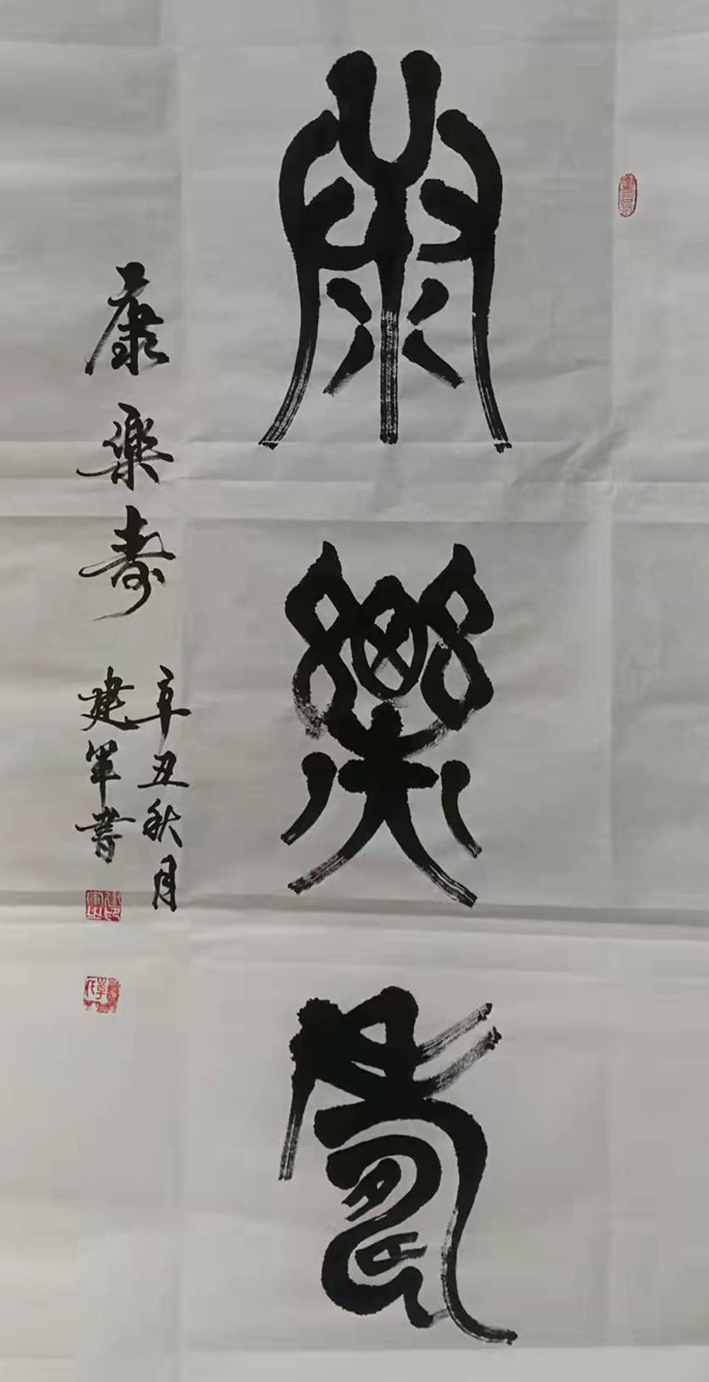 康樂壽
康樂壽
辛丑秋月
建軍書